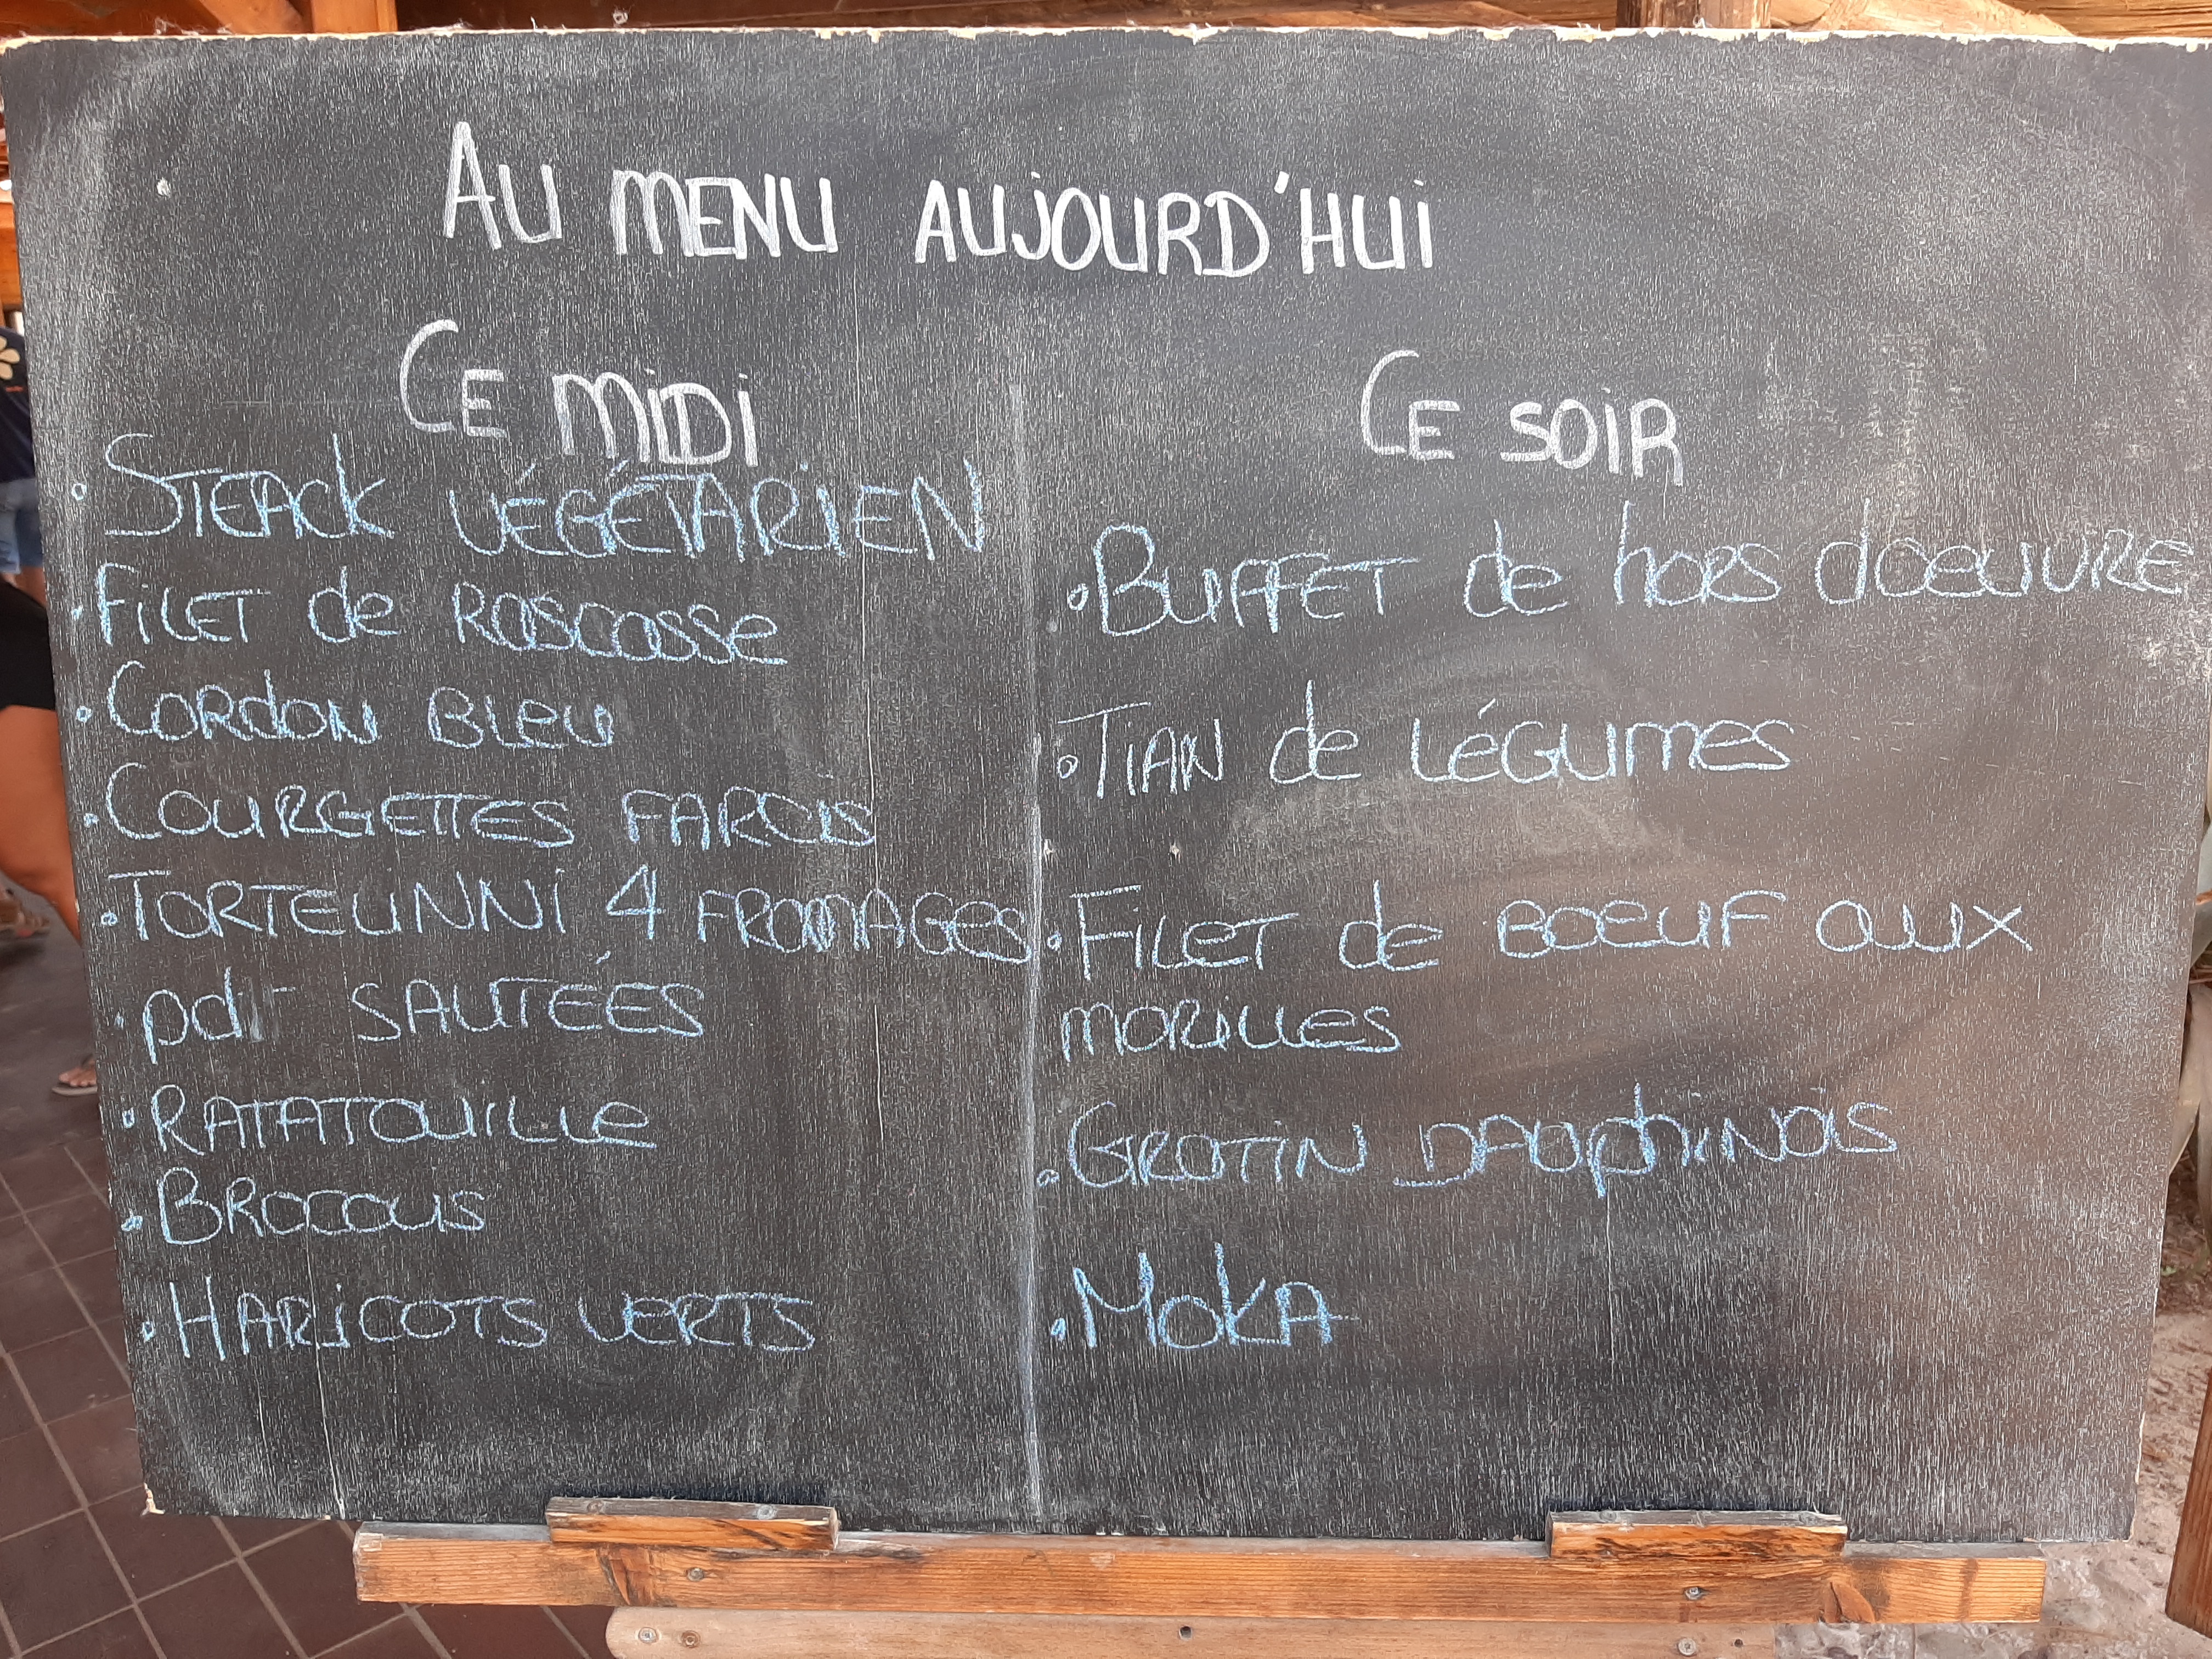 AU MENU AUJOURD'HUI
CE MIDI
• STEACK VÉGÉTARIEN
• FILET de RASCASSE
• CORDON BLEU
• COURGETTES FARCIS
• TORTELINNI 4 FROMAGES
• pdt SAUTÉES
• RATATOUILLE
• BROCOLIS
• HARICOTS VERTS
CE SOIR
• BUFFET de hors d'oeuvre
• TIAN de LÉGUMES
• FILET de BOEUF aux
MORILLES
• GRATIN DAUPHINOIS
• MOKA